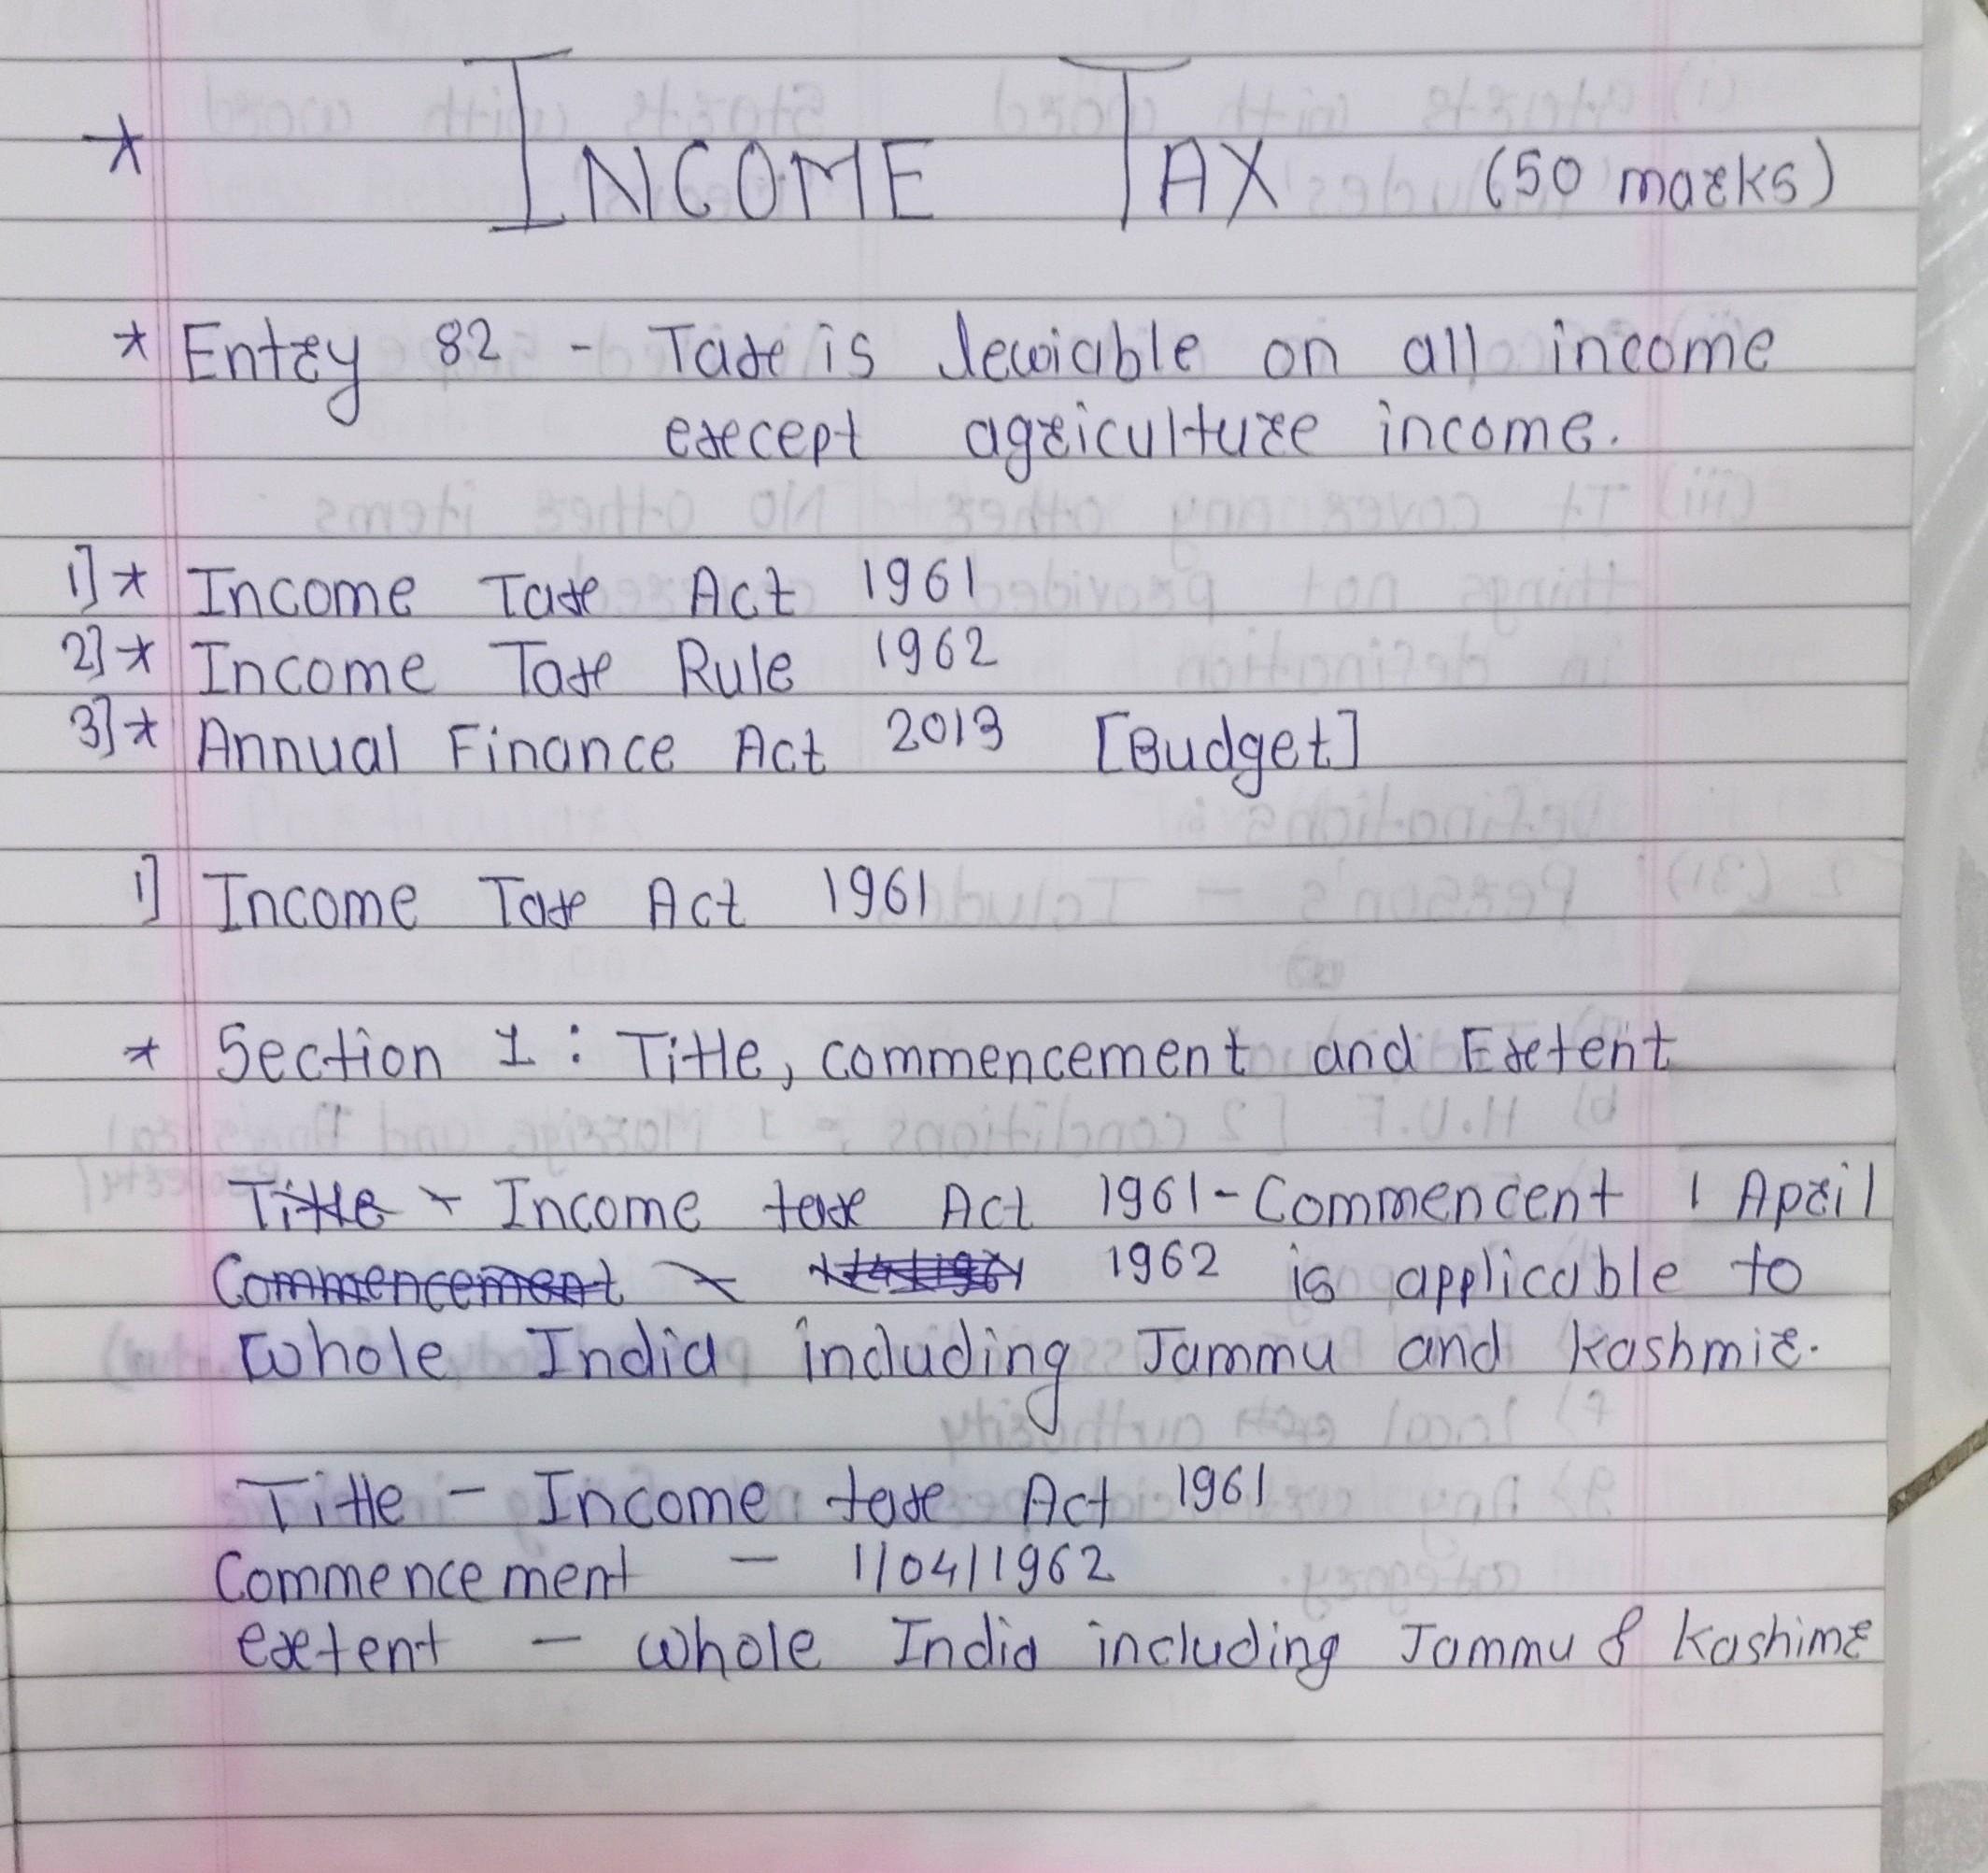 * INCOME TAX (50 marks)
* Entry 82 - Tax is leviable on all income
except agriculture income.
1] * Income Tax Act 1961
2] * Income Tax Rule 1962
3] * Annual Finance Act 2013 [Budget]
1] Income Tax Act 1961
* Section 1 : Title, commencement and Extent
Title - Income tax Act 1961 - Commencent 1 April
Commencement - 1962 is applicable to
whole India including Jammu and Kashmir.
Title - Income tax Act 1961
Commencement - 1/04/1962
extent - whole India including Jammu & Kashimr